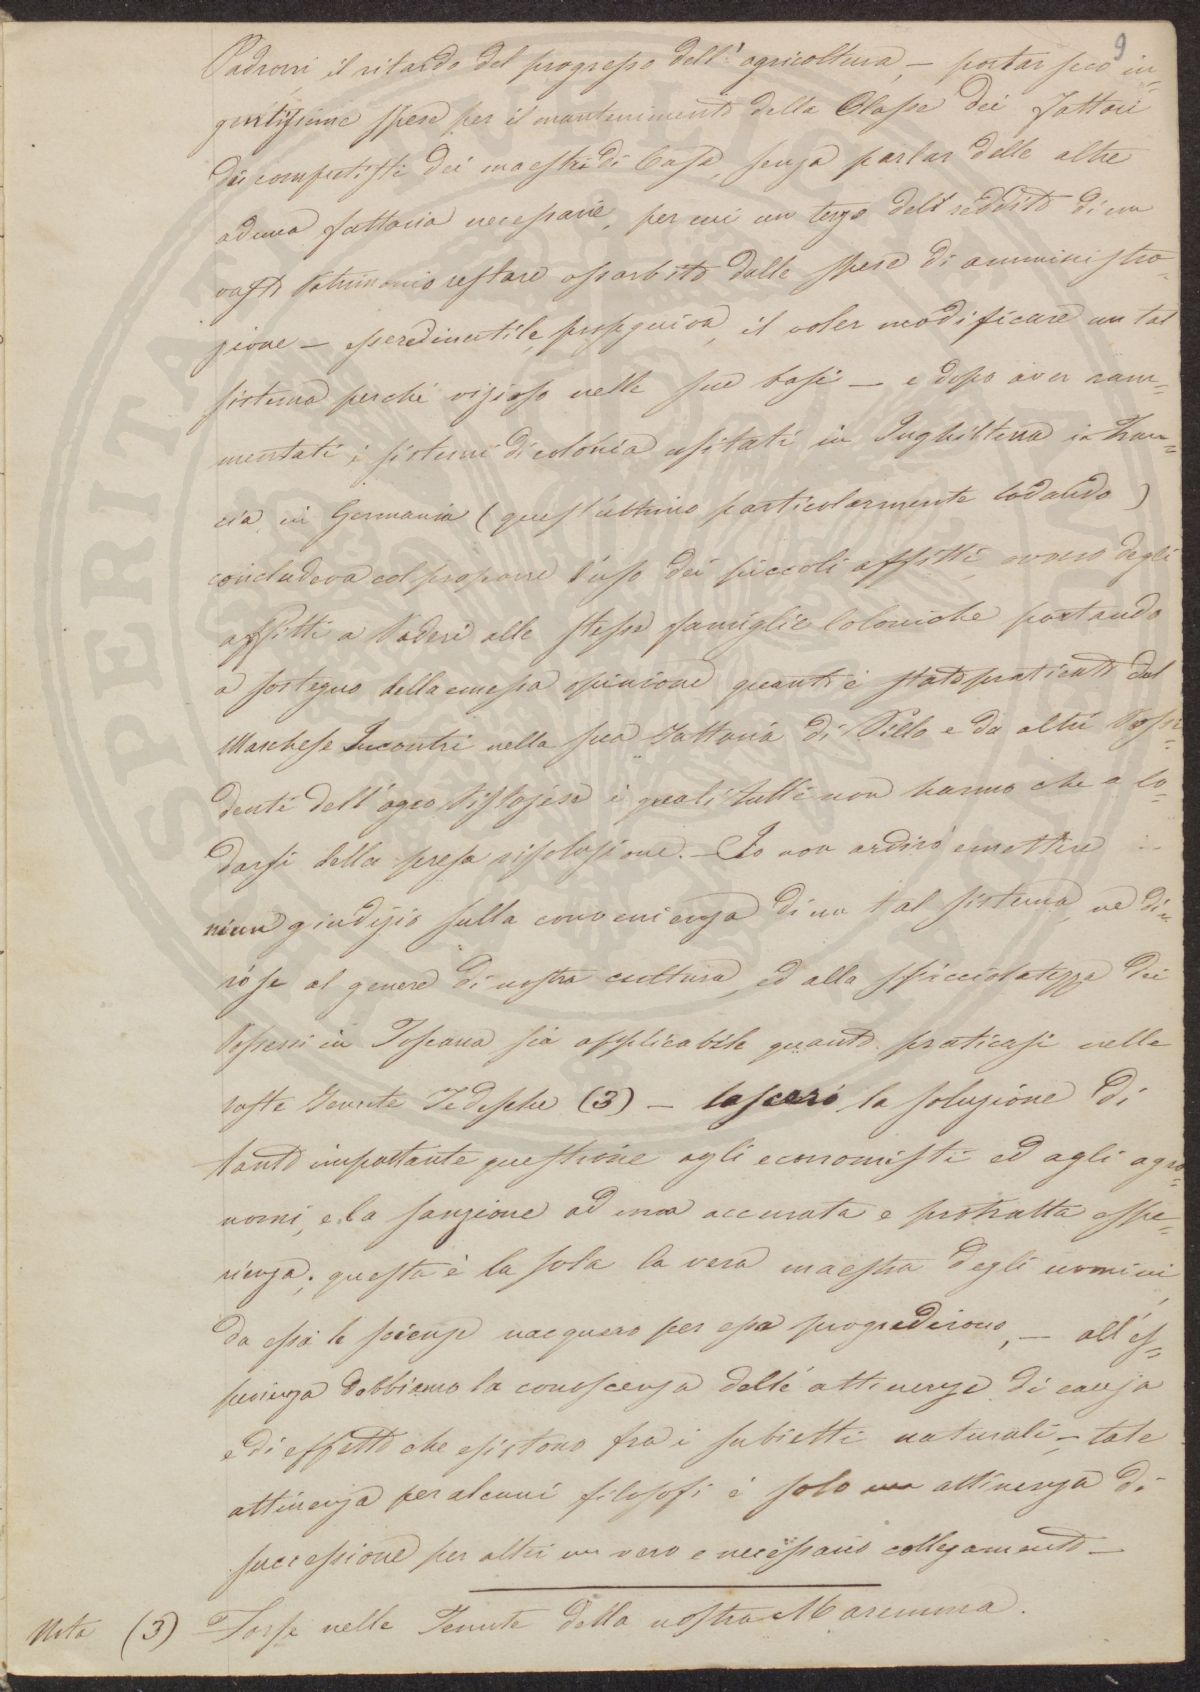 9
Padroni il ritardo del progresso dell'agricoltura, — portar seco in-
gentissime spese per il mantenimento della Classe dei Fattori
dei computisti dei maestri di Casa, senza parlar delle altre
ad una fattoria necessarie, per cui un terzo dell reddito di un
vasto Patrimonio restare assorbito dalle spese di amministra-
zione — essere inutile, proseguiva, il voler modificare un tal
sistema perché vizioso nelle sue basi — e dopo aver ram-
mentati i sistemi di colonia usitati in Inghilterra in Fran-
cia in Germania (quest'ultimo particolarmente lodando)
concludeva col proporre l'uso dei piccoli affitti, ovvero degli
affitti a Poderi alle stesse famiglie Coloniche portando
a sostegno della emessa opinione quanto è stato praticato dal
Marchese Incontri nella sua Fattoria di Pillo e da altri Possi-
denti dell'agro Pistojese i quali tutti non hanno che a lo-
darsi della presa risoluzione. — Io non ardirò emettere
niun giudizio sulla convenienza di un tal sistema, ne di-
rò se al genere di nostra cultura, ed alla spicciolatezza dei
Possessi in Toscana sia applicabile quanto praticasi nelle
vaste Tenute Tedesche (3) — lascerò la soluzione di
tanto importante questione agli economisti ed agli agro-
nomi, e la sanzione ad una accurata e protratta espe-
rienza; questa è la sola la vera maestra degli uomini,
da essa le scienze nacquero per essa progredirono, — all'es-
perienza dobbiamo la conoscenza delle attinenze di causa
e di effetto che esistono fra i subietti naturali — tale
attinenza per alcuni filosofi è solo una attinenza di
successione per altri un vero e necessario collegamento —
Nota (3) Forse nelle Tenute della nostra Maremma.
SPERITATE PUBLICA